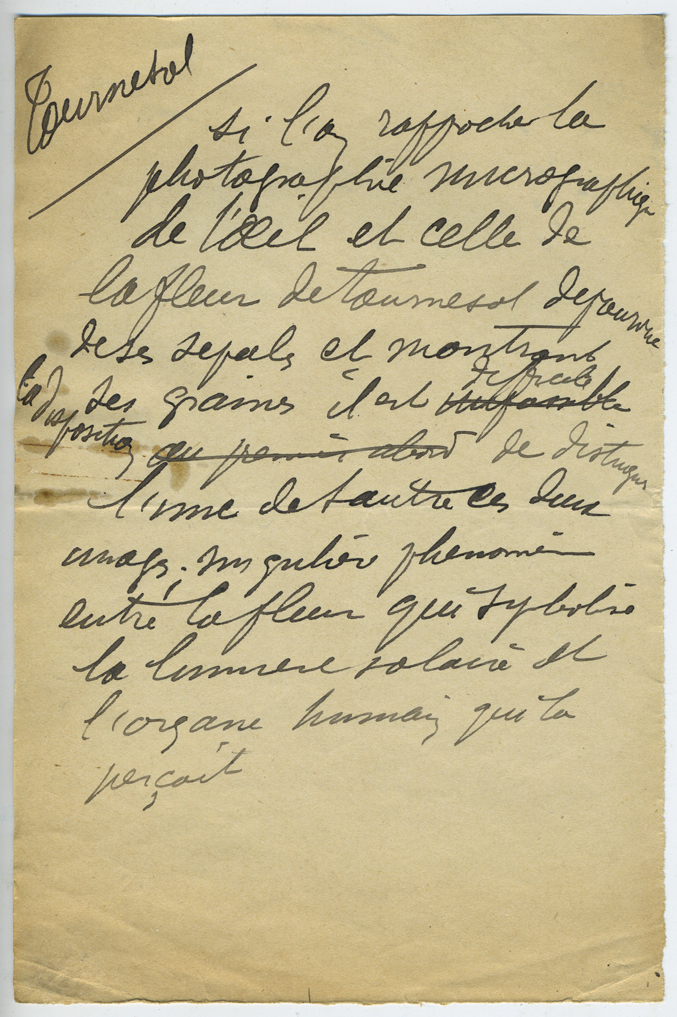 Tournesol
si l'on rapproche la
photographie micrographique
de l'Œil et celle de
la fleur de tournesol depourvue
de ses sepals et montrant
la disposition
ses graines il est impossible
difficile
au premier abord de distinguer
l'une de l'autre ces deux
images. singulière phenomène
entre la fleur qui sybolise
la lumiere solaire et
l'organe humain qui la
perçoit